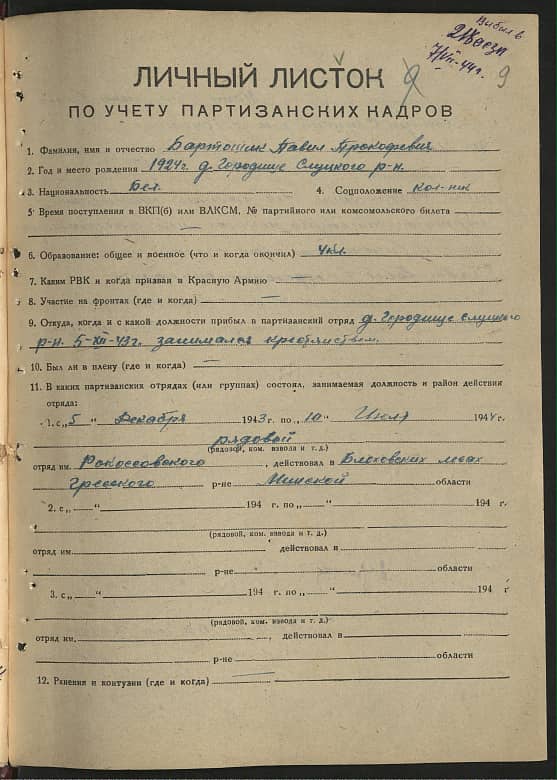 Выбыл в
7/VII-44г.
9
ЛИЧНЫЙ ЛИСТОК
ПО УЧЕТУ ПАРТИЗАНСКИХ КАДРОВ
1. Фамилия, имя и отчество Бартошик Павел Прокофевич
2. Год и место рождения 1924г. д. Городище Слуцкого р-н.
3. Национальность Бел. 4. Соцположение кол-ник
5. Время поступления в ВКП(б) или ВЛКСМ, № партийного или комсомольского билета
6. Образование: общее и военное (что и когда окончил) 4кл.
7. Каким РВК и когда призван в Красную Армию —
8. Участие на фронтах (где и когда) —
9. Откуда, когда и с какой должности прибыл в партизанский отряд д. Городище Слуцкого
р-н. 5-XII-43г. занимался
10. Был ли в плену (где и когда) —
11. В каких партизанских отрядах (или группах) состоял, занимаемая должность и район действия
отряда:
1. с „5" Декабря 1943 г. по „10" Июля 1944 г.
рядовой
(рядовой, ком. взвода и т. д.)
отряд им. Рокоссовского, действовал в лесах
Гресского р-не Минской области
2. с „ " 194 г. по „ " 194 г.
(рядовой, ком. взвода и т. д.)
отряд им. действовал в
р-не области
3. с „ " 194 г. по „ " 194 г
(рядовой, ком. взвода и т. д.)
отряд им. , действовал в
р-не области
12. Ранения и контузии (где и когда) —